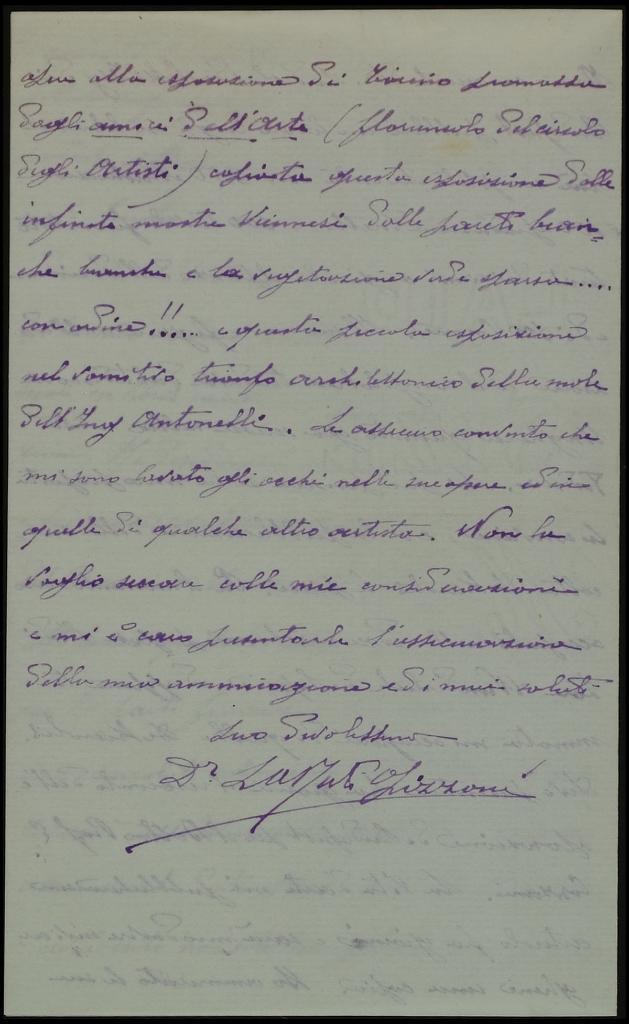 alla esposizione di Torino promossa
dagli amici dell'Arte (
degli Artisti) copiata questa esposizione dalle
infinite mostre Viennesi dalle pareti bian=
che bianche e la vegetazione verde sparsa....
con ordine!!.... e questa piccola esposizione
nel trionfo architettonico della mole
dell'Ing Antonelli. Le assicuro convinto che
mi sono lavato gli occhi nelle sue opere ed in
quelle di qualche altro artista. Non la
voglio seccare colle mie considerazioni
e mi è caro presentarle l'assicurazione
della mia ammirazione e di miei saluti
Suo Devotissimo
Dr Lizzoni